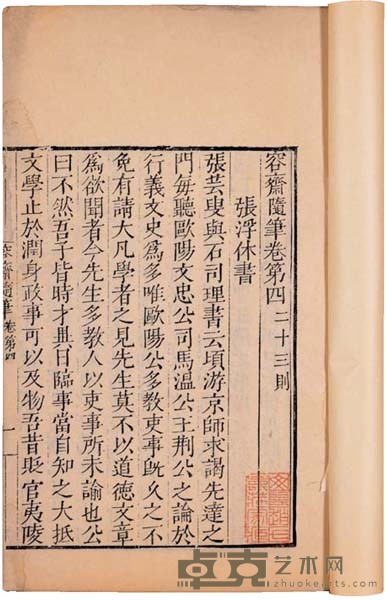 容齋隨筆卷第四 二十三則
張浮休書
張芸叟與石司理書云頃游京師求謁先達之
門每聽歐陽文忠公司馬溫公王荊公之論於
行義文史為多唯歐陽公多教吏事既久之不
免有請大凡學者之見先生莫不以道德文章
為欲聞者今先生多教人以吏事所未諭也公
曰不然吾子皆時才異日臨事當自知之大抵
文學止於潤身政事可以及物吾昔貶官夷陵
容齋隨筆 卷第四
一
卓克艺术网
zhuokearts.com